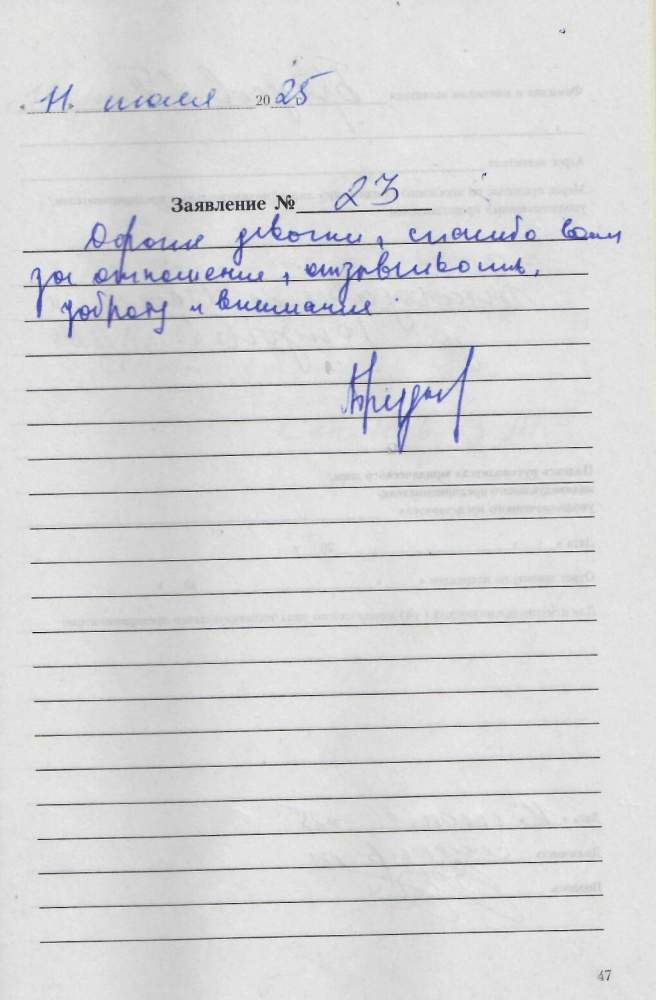 « 11 » июля 2025
Заявление № 23
Дорогие девочки, спасибо вам
за отношение, отзывчивость,
доброту и внимание.
47